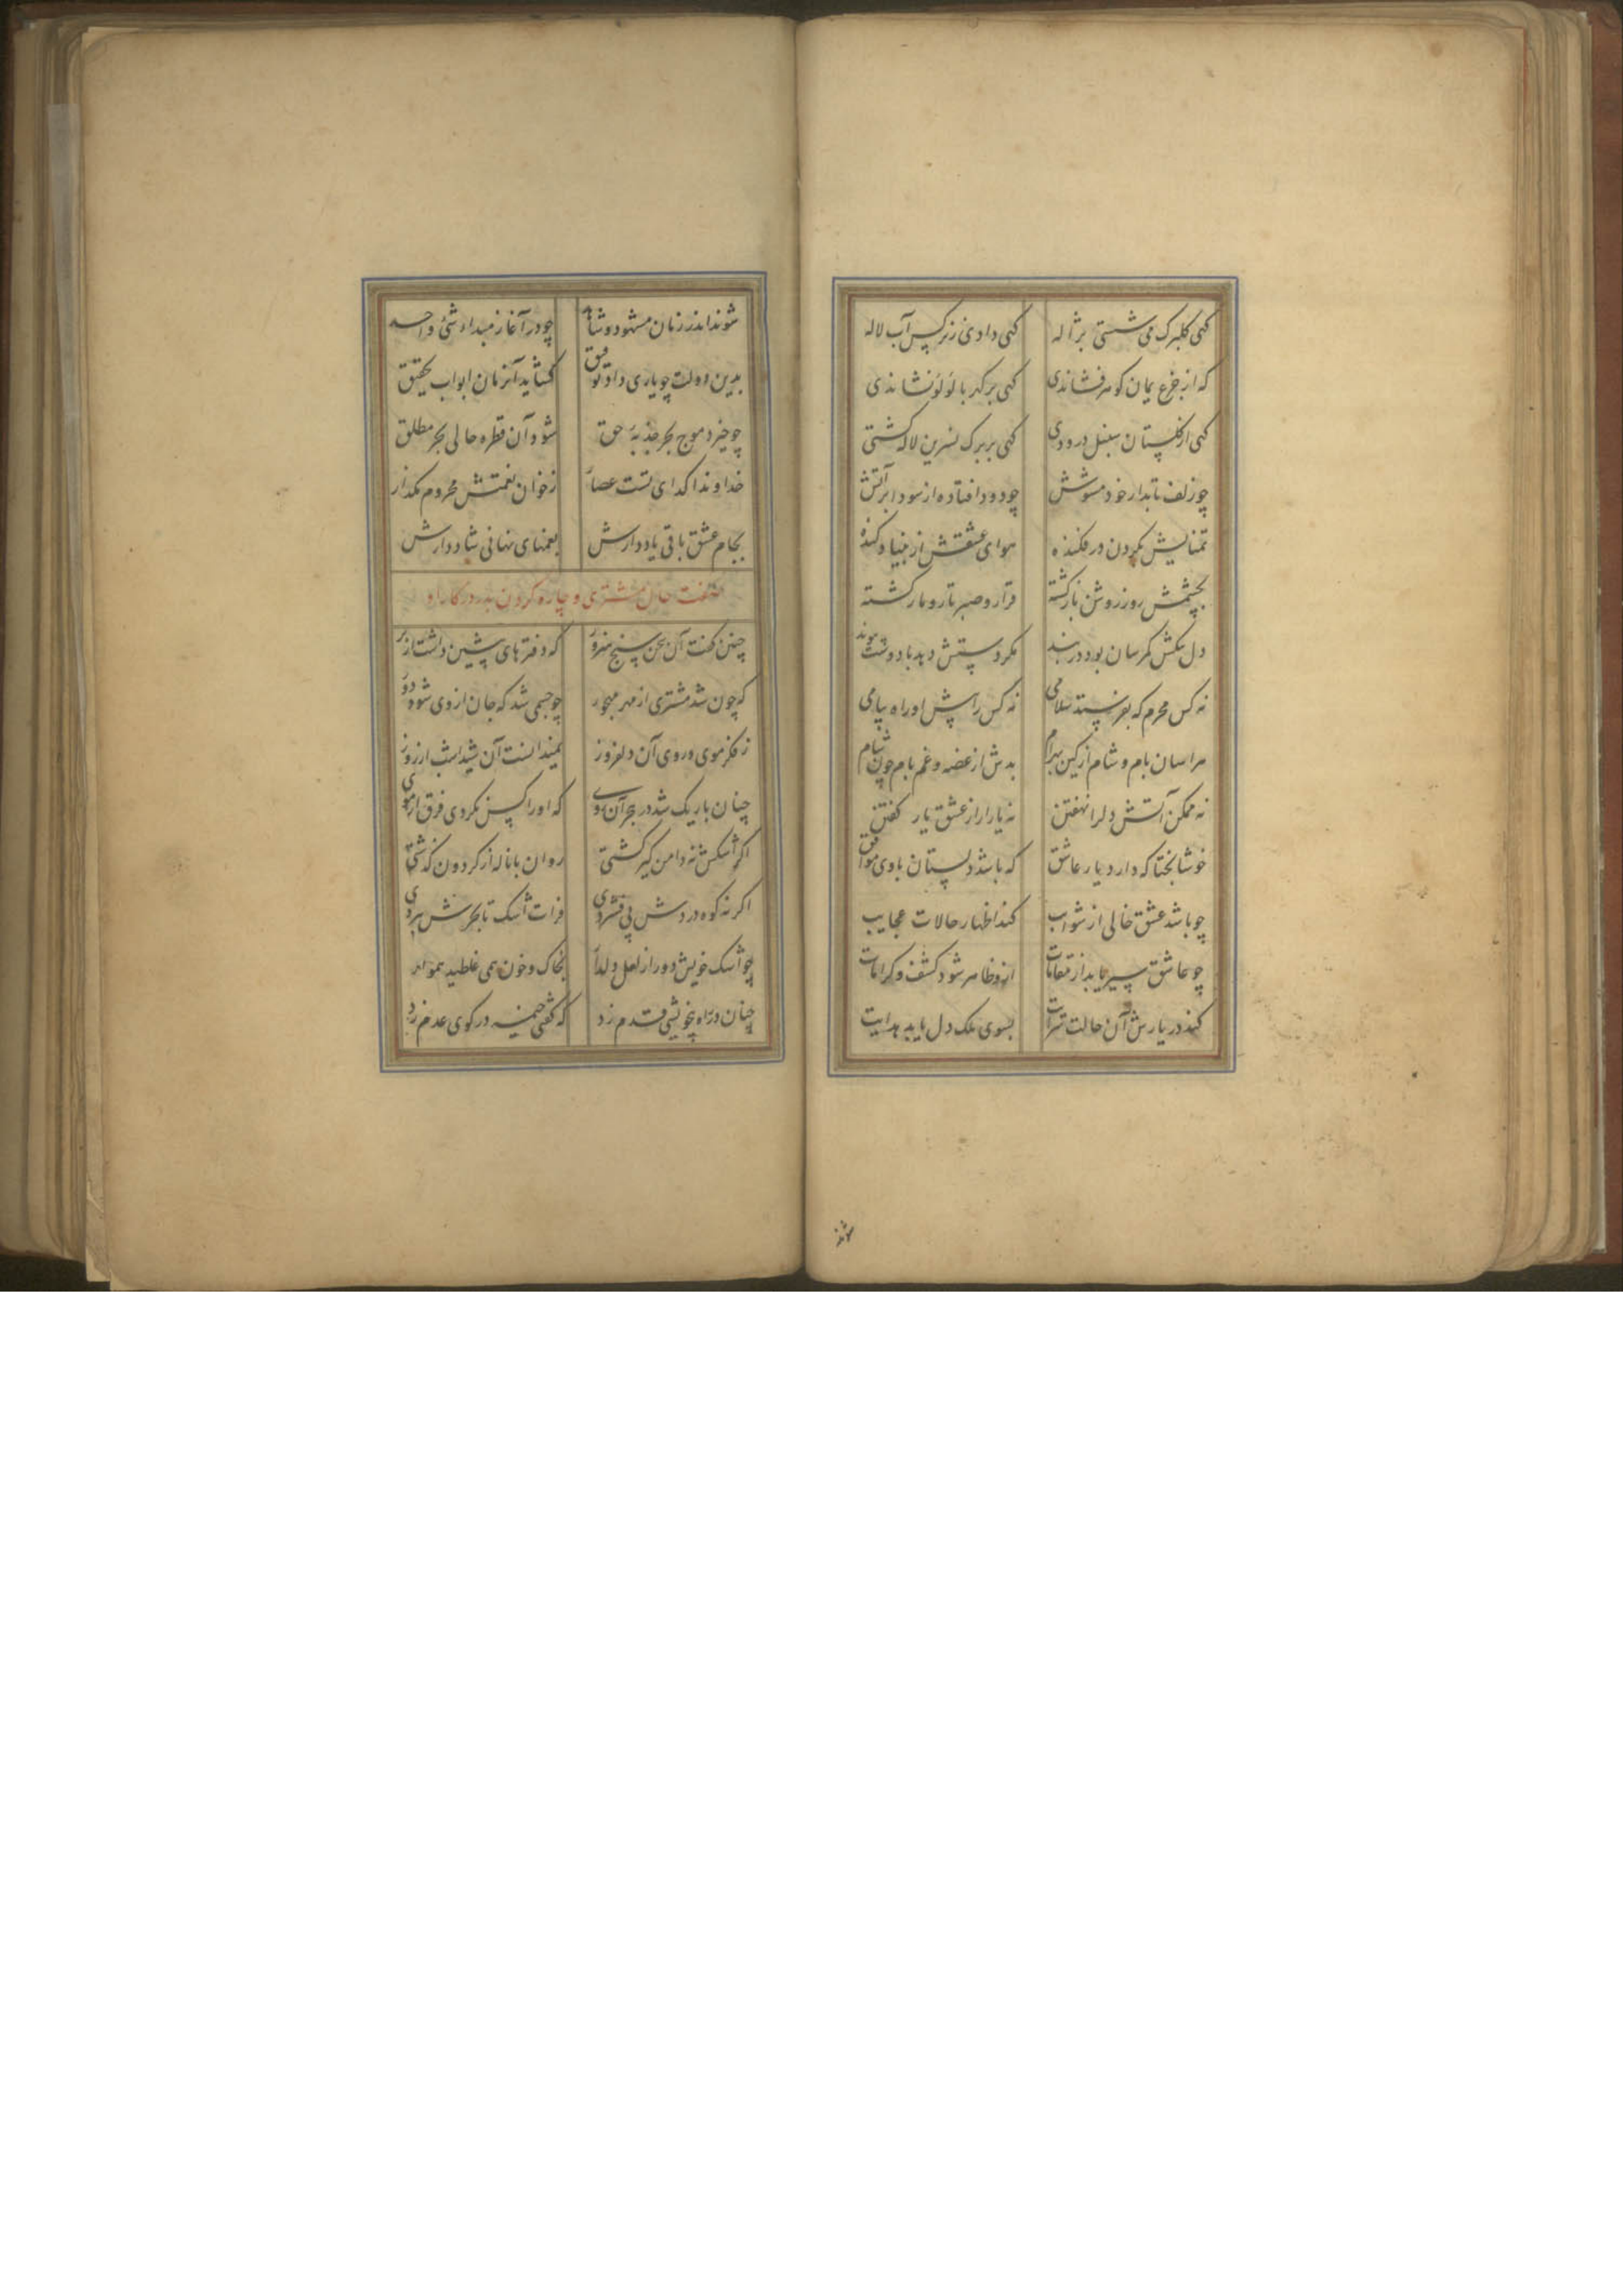 کهی کلبرک می شستی بژاله کهی دادی ز نرکس آب لاله
که از جزع یمان کوهر فشاندی کهی بر کهربا لؤلؤ نشاندی
کهی از کلستان سنبل درودی کهی بر برک نسرین لاله کشتی
چو زلف تابدار خود مشوش چو دود افتاده از سودا بر آتش
تمنایش بکردن در فکنده هوای عشقش از بنیاد کنده
بچشمش روز روشن تار کشته قرار و صبر تار و مار کشته
دل تنکش کمرسان بود در بند مکر دستش دهد با دوست پیوند
نه کس محرم که بفرستد سلامی نه کس را پیش او راه پیامی
هراسان بام و شام از کین بهرام بدش از غصه و غم بام چون شام
نه ممکن آتش دل را نهفتن نه یارا راز عشق یار کفتن
خوشا بختا که دارد یار عاشق که باشد دلستان با وی موافق
چو باشد عشق خالی از شوایب کند اظهار حالات عجایب
چو عاشق سیر یابد از مقامات ازو ظاهر شود کشف و کرامات
کند در یارش آن حالت سرایت بسوی ملک دل یابد هدایت
شوند
شوند اندر زمان مشهود و شاهد چو در آغاز مبداء شئ واحد
بدین دولت چو یاری داد توفیق کشاید آنزمان ابواب تحقیق
چو خیزد موج بحر جذبهٔ حق شود آن قطره حالی بحر مطلق
خداوندا کدای تست عصار ز خوان نعمتش محروم مکذار
بجام عشق باقی یاد دارش بغمهای نهانی شاد دارش
صفت حال مشتری و چاره کردن بدر در کار او
چنین کفت آن سخن سنج هنرور که دفترهای پیشین داشت از بر
که چون شد مشتری از مهر مهجور چو جسمی شد که جان از وی شود دور
ز فکر موی و روی آن دلفروز نمیدانست آن شیدا شب از روز
چنان باریک شد در هجر آن روی که او را کس نکردی فرق از موی
اکر اشکش نه دامن کیر کشتی روان با ناله از کردون کذشتی
اکر نه کوه دردش پی فشردی فرات اشک تا بحرش ببردی
چو اشک خویش دور از لعل دلدار بخاک و خون همی غلطید هموار
چنان در راه بیخویشی قدم زد که کفتی خیمه در کوی عدم زد